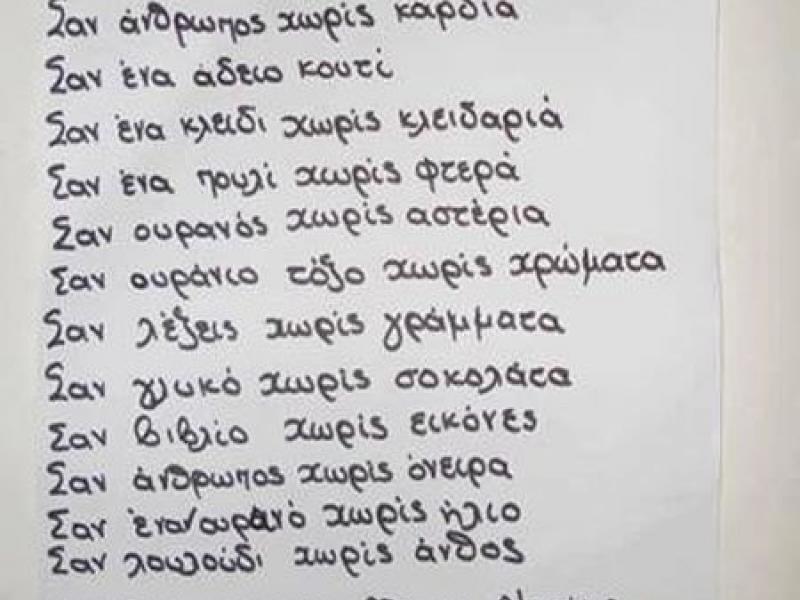 Σαν άνθρωπος χωρίς καρδιά
Σαν ένα άδειο κουτί
Σαν ένα κλειδί χωρίς κλειδαριά
Σαν ένα πουλί χωρίς φτερά
Σαν ουρανός χωρίς αστέρια
Σαν ουράνιο τόξο χωρίς χρώματα
Σαν λέξεις χωρίς γράμματα
Σαν γλυκό χωρίς σοκολάτα
Σαν βιβλίο χωρίς εικόνες
Σαν άνθρωπος χωρίς όνειρα
Σαν ένα/ουρανό χωρίς ήλιο
Σαν λουλούδι χωρίς άνθος